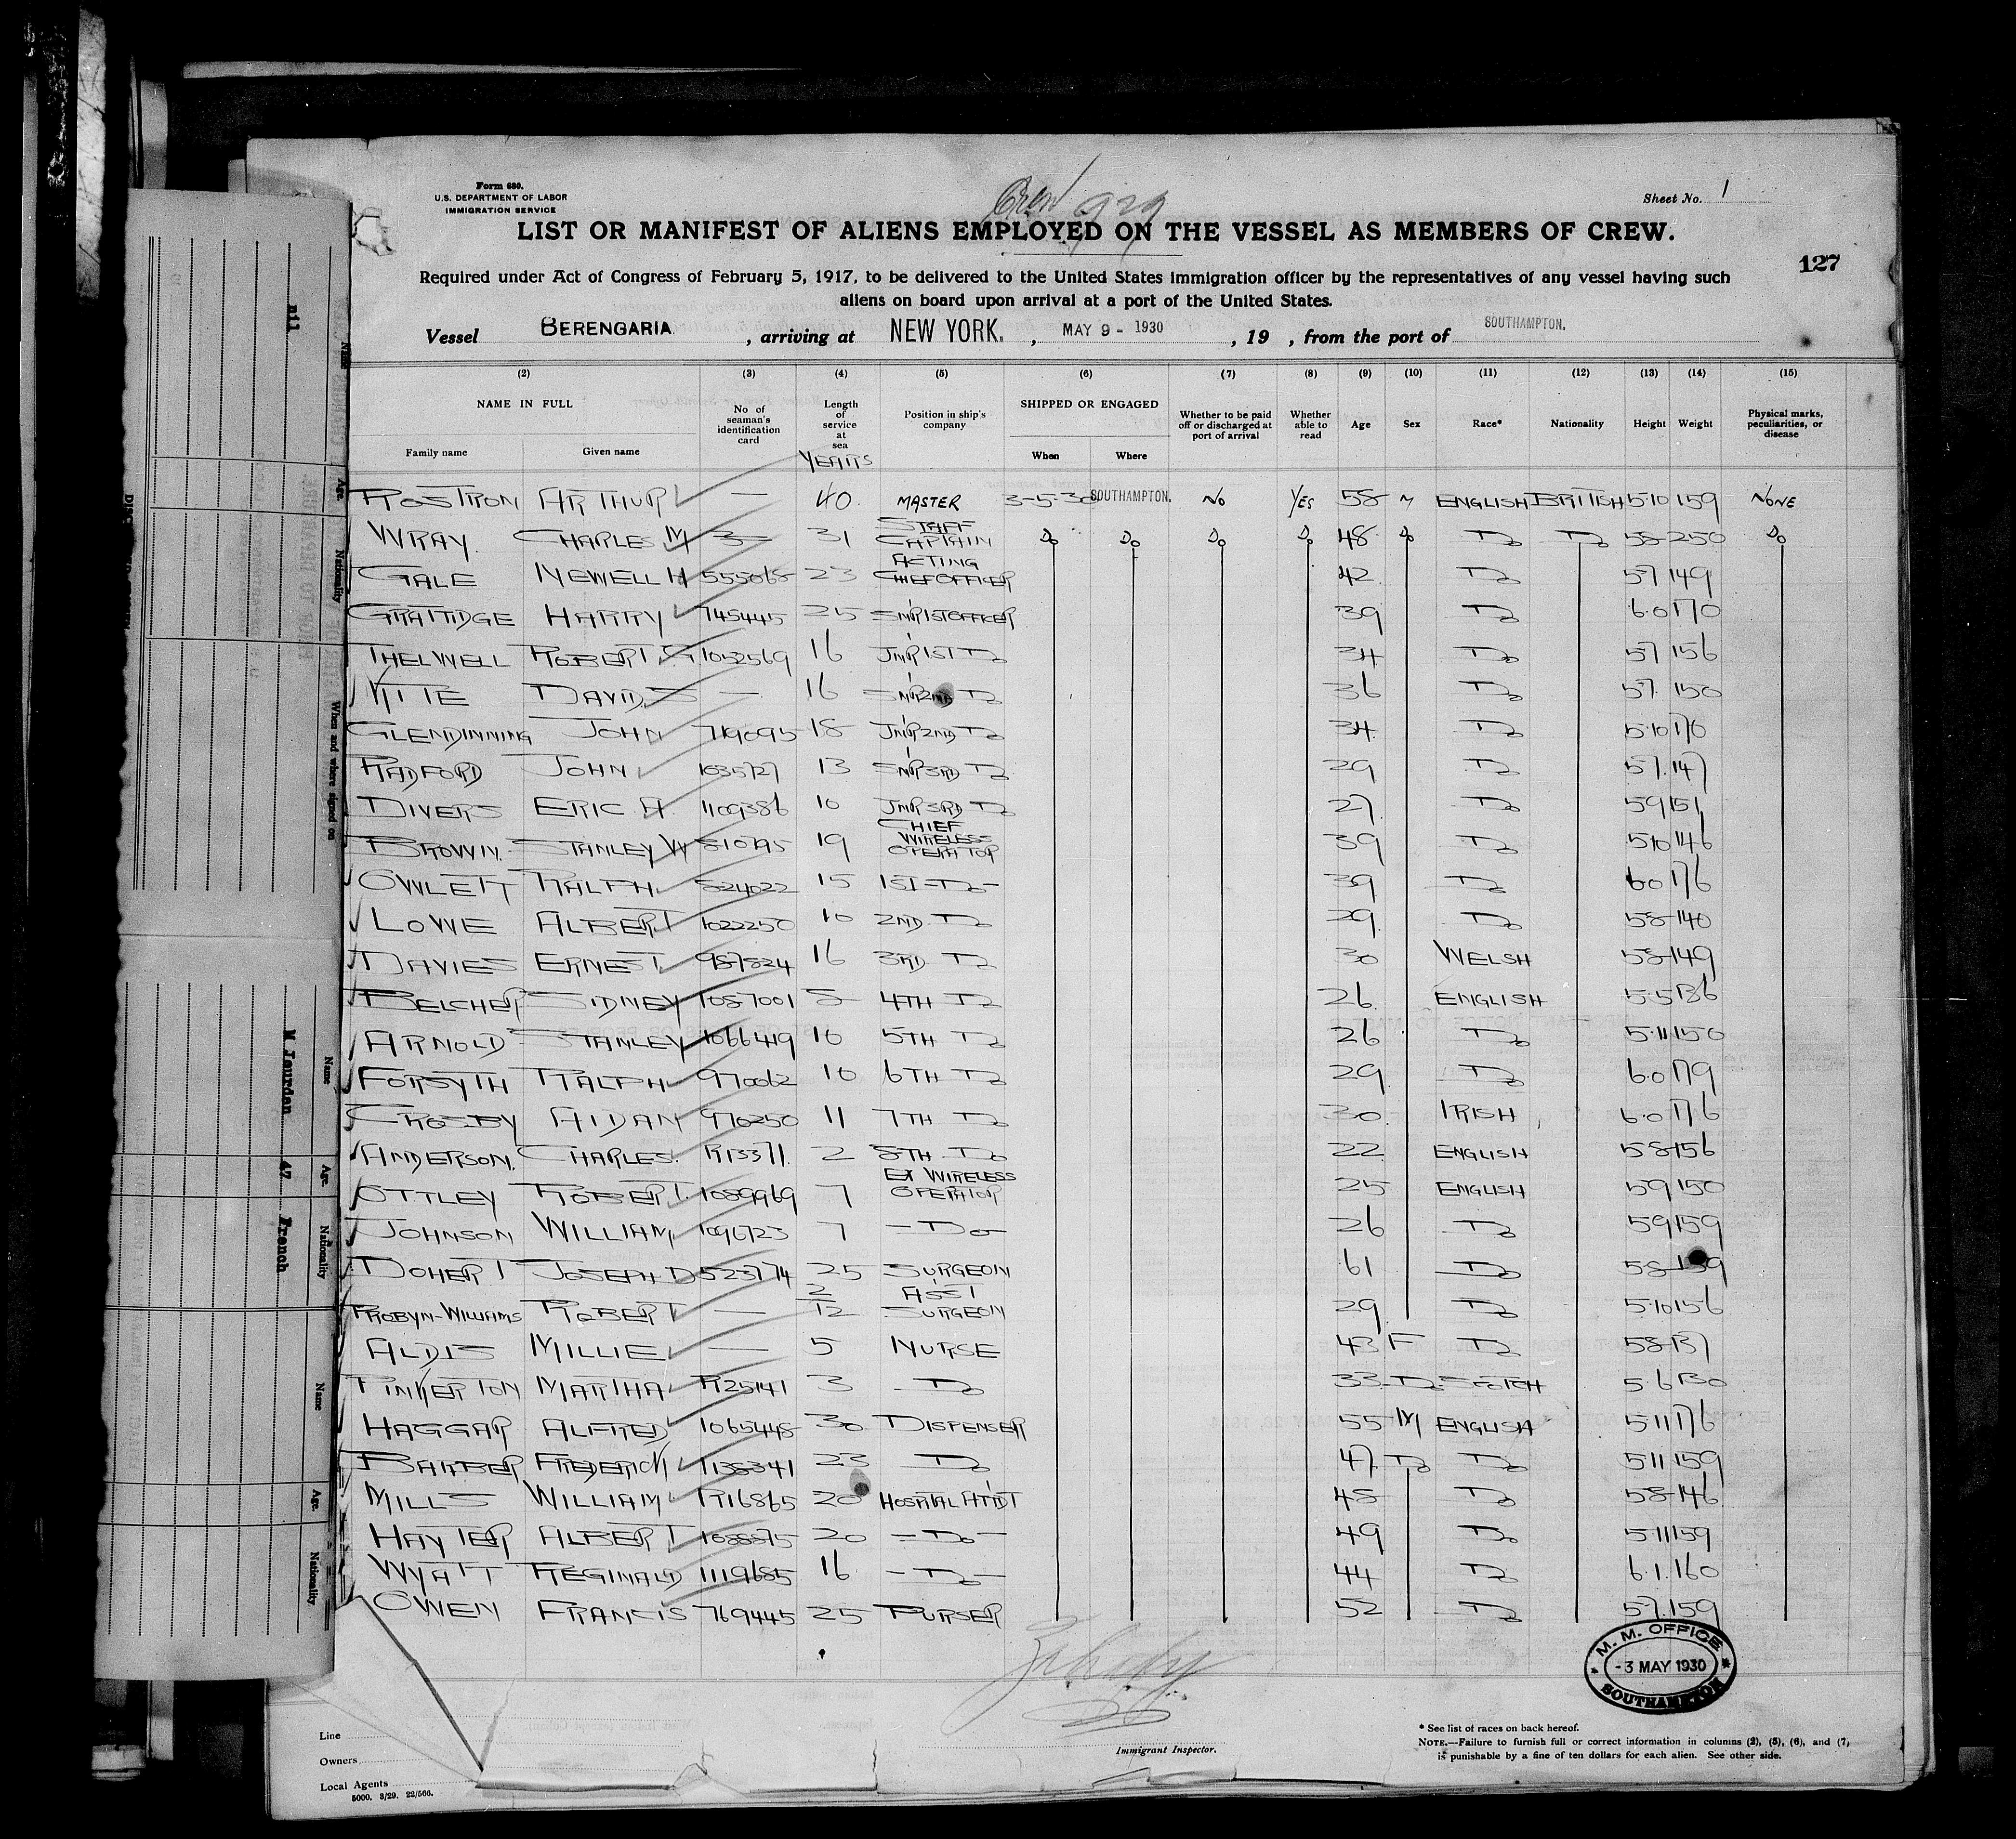 Form 680.
U.S. DEPARTMENT OF LABOR
IMMIGRATION SERVICE
Crew 929
Sheet No. 1
LIST OR MANIFEST OF ALIENS EMPLOYED ON THE VESSEL AS MEMBERS OF CREW.
127
Required under Act of Congress of February 5, 1917, to be delivered to the United States immigration officer by the representatives of any vessel having such
aliens on board upon arrival at a port of the United States.
Vessel BERENGARIA, arriving at NEW YORK., MAY 9 - 1930, 19 , from the port of SOUTHAMPTON.
(2) (3) (4) (5) (6) (7) (8) (9) (10) (11) (12) (13) (14) (15)
NAME IN FULL No. of seaman's identification card Length of service at sea Position in ship's company SHIPPED OR ENGAGED Whether to be paid off or discharged at port of arrival Whether able to read Age Sex Race* Nationality Height Weight Physical marks, peculiarities, or disease
Family name Given name YEARS When Where
ROSTRON ARTHUR — 40. MASTER 3-5-30 SOUTHAMPTON. NO YES 58 M ENGLISH BRITISH 5·10 159 NONE
WRAY. CHARLES M 31 STAFF CAPTAIN Do Do Do Do 48 Do Do Do 58 250 Do
GALE NEWELL H 555065 23 ACTING CHIEF OFFICER 42 Do 57 149
GRATTIDGE HARRY 745445 25 SNR 1ST OFFICER 39 Do 6·0 170
THELWELL ROBERT G 1052569 16 JNR 1ST Do 34 Do 57 156
KITTE DAVID S — 16 SNR 2ND Do 36 Do 57 150
GLENDINNING JOHN 719095 18 JNR 2ND Do 34 Do 5·10 176
RADFORD JOHN 1035727 13 SNR 3RD Do 29 Do 57 147
DIVERS ERIC A. 1109386 10 JNR 3RD Do 27 Do 59 151
BROWN. STANLEY W 810795 19 CHIEF WIRELESS OPERATOR 39 Do 5·10 146
OWLETT RALPH 824022 15 1ST Do 39 Do 6·0 176
LOWE ALBERT 1022250 10 2ND Do 29 Do 58 140
DAVIES ERNEST 987824 16 3RD Do 30 WELSH 58 149
BELCHER SIDNEY 1087001 8 4TH Do 26 ENGLISH 5·5 136
ARNOLD STANLEY 1066419 10 5TH Do 26 Do 5·11 150
FORSYTH RALPH 970062 10 6TH Do 29 Do 6·0 179
CROSBY AIDAN 976250 11 7TH Do 30 IRISH 6·0 176
ANDERSON. CHARLES. R13371. 2 8TH Do 22 ENGLISH 58 156
OTTLEY ROBERT. 1089969 7 EX WIRELESS OPERATOR 25 ENGLISH 59 150
JOHNSON WILLIAM 1096723 7 — Do — 26 Do 59 159
DOHERT JOSEPH D 523174 25 SURGEON 61 Do 58 159
PROBYN-WILLIAMS ROBERT — 2/12 ASST SURGEON 29 Do 5·10 156
ALDIS MILLIE — 5 NURSE 43 F Do 58 137
PINKERTON MARTHA R25141 3 Do 33 Do SCOTCH 5·6 130
HAGGAR ALFRED 1065448 30 DISPENSER 55 M ENGLISH 5·11 176
BARBER FREDERICK 1138341 23 Do 47 Do Do 5·11 159
MILLS WILLIAM R16865 20 HOSPITAL ATTDT 48 Do 58 146
HAYTER ALBERT 1088875 20 — Do — 49 Do 5·11 159
WYATT REGINALD 1119685 16 — Do — 44 Do 6·1. 160
OWEN FRANCIS 769445 25 PURSER 52 Do 57. 159
M. M. OFFICE
- 3 MAY 1930
SOUTHAMPTON
Line
Owners
Local Agents
5000. 3/29. 22/566.
Immigrant Inspector.
* See list of races on back hereof.
NOTE.—Failure to furnish full or correct information in columns (2), (5), (6), and (7)
is punishable by a fine of ten dollars for each alien. See other side.
nil
Name
Age
Nationality
When and where signed on
M Jourdan
47
French
Name
Age
Nationality
Name
Age
Nationality